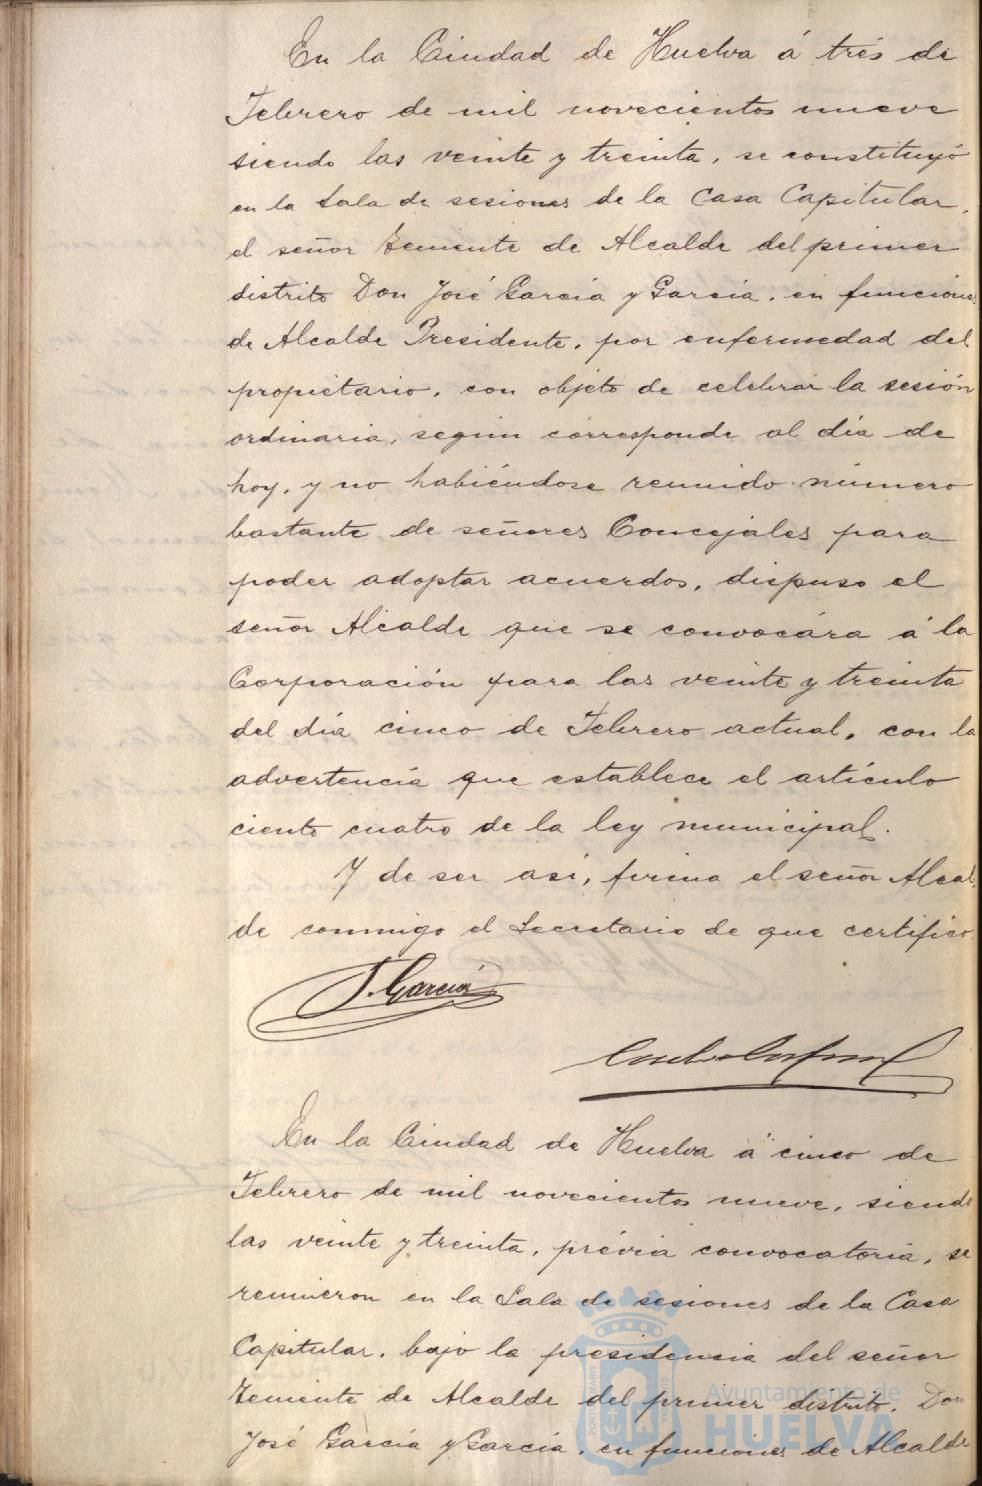 En la Ciudad de Huelva á tres de
Febrero de mil novecientos nueve
siendo las veinte y treinta, se constituyó
en la Sala de sesiones de la Casa Capitular,
el señor Teniente de Alcalde del primer
distrito Don José García y García, en funciones
de Alcalde Presidente, por enfermedad del
propietario, con objeto de celebrar la sesión
ordinaria, segun corresponde al día de
hoy, y no habiéndose reunido número
bastante de señores Concejales para
poder adoptar acuerdos, dispuso el
señor Alcalde que se convocára á la
Corporación para las veinte y treinta
del día cinco de Febrero actual, con la
advertencia que establece el artículo
ciento cuatro de la ley municipal.
Y de ser así, firma el señor Alcal
de conmigo el Secretario de que certifico.
J. García
En la Ciudad de Huelva á cinco de
Febrero de mil novecientos nueve, siendo
las veinte y treinta, prévia convocatoria, se
reunieron en la Sala de sesiones de la Casa
Capitular, bajo la presidencia del señor
Teniente de Alcalde del primer distrito, Don
José García y García, en funciones de Alcalde
Ayuntamiento de
HUELVA